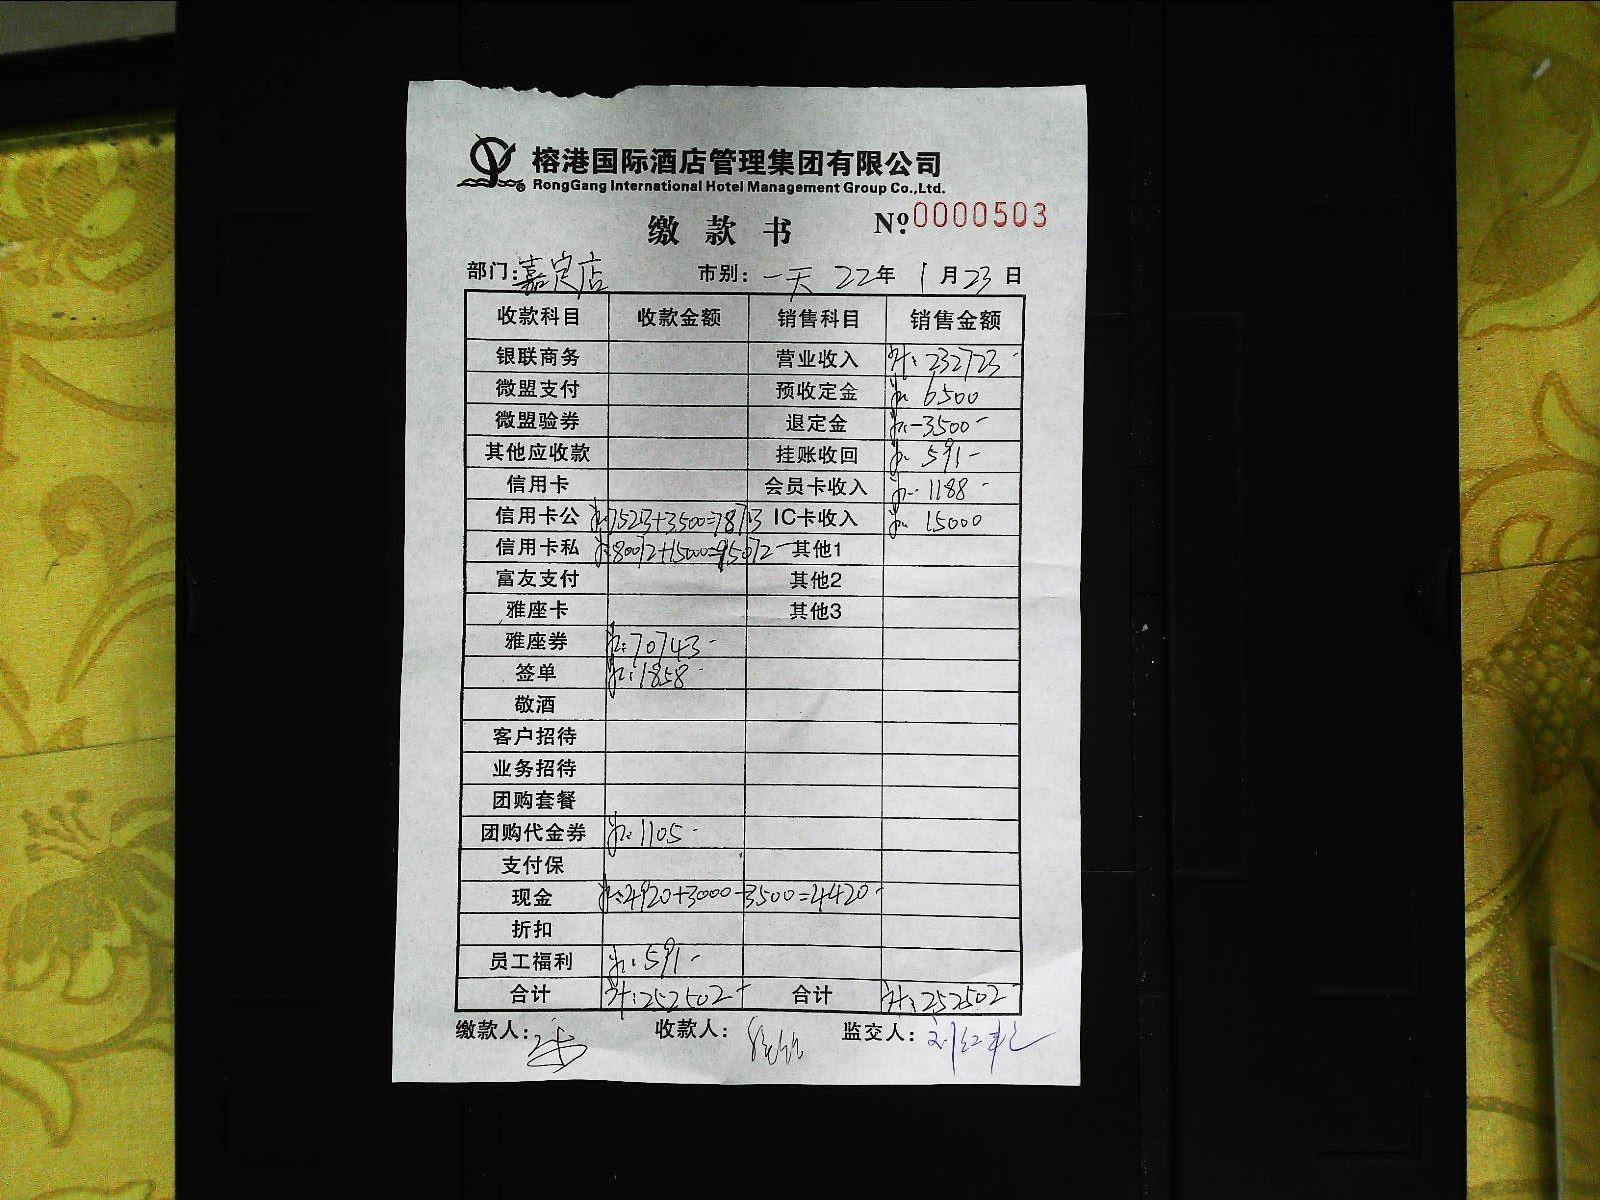 榕港国际酒店管理集团有限公司
RongGang International Hotel Management Group Co.,Ltd.
缴款书 Nº:0000503
部门:嘉定店 市别:一天 22年 1月23日
收款科目 收款金额 销售科目 销售金额
银联商务 营业收入 232723-
微盟支付 预收定金 6500
微盟验券 退定金 -3500-
其他应收款 挂账收回 591-
信用卡 会员卡收入 1188-
信用卡公 75213+3500=78713 IC卡收入 15000
信用卡私 80072+15000=95072- 其他1
富友支付 其他2
雅座卡 其他3
雅座券 70743-
签单 1858-
敬酒
客户招待
业务招待
团购套餐
团购代金券 1105-
支付保
现金 4920+3000-3500=4420-
折扣
员工福利 591-
合计 252502- 合计 252502-
缴款人: 收款人: 监交人: